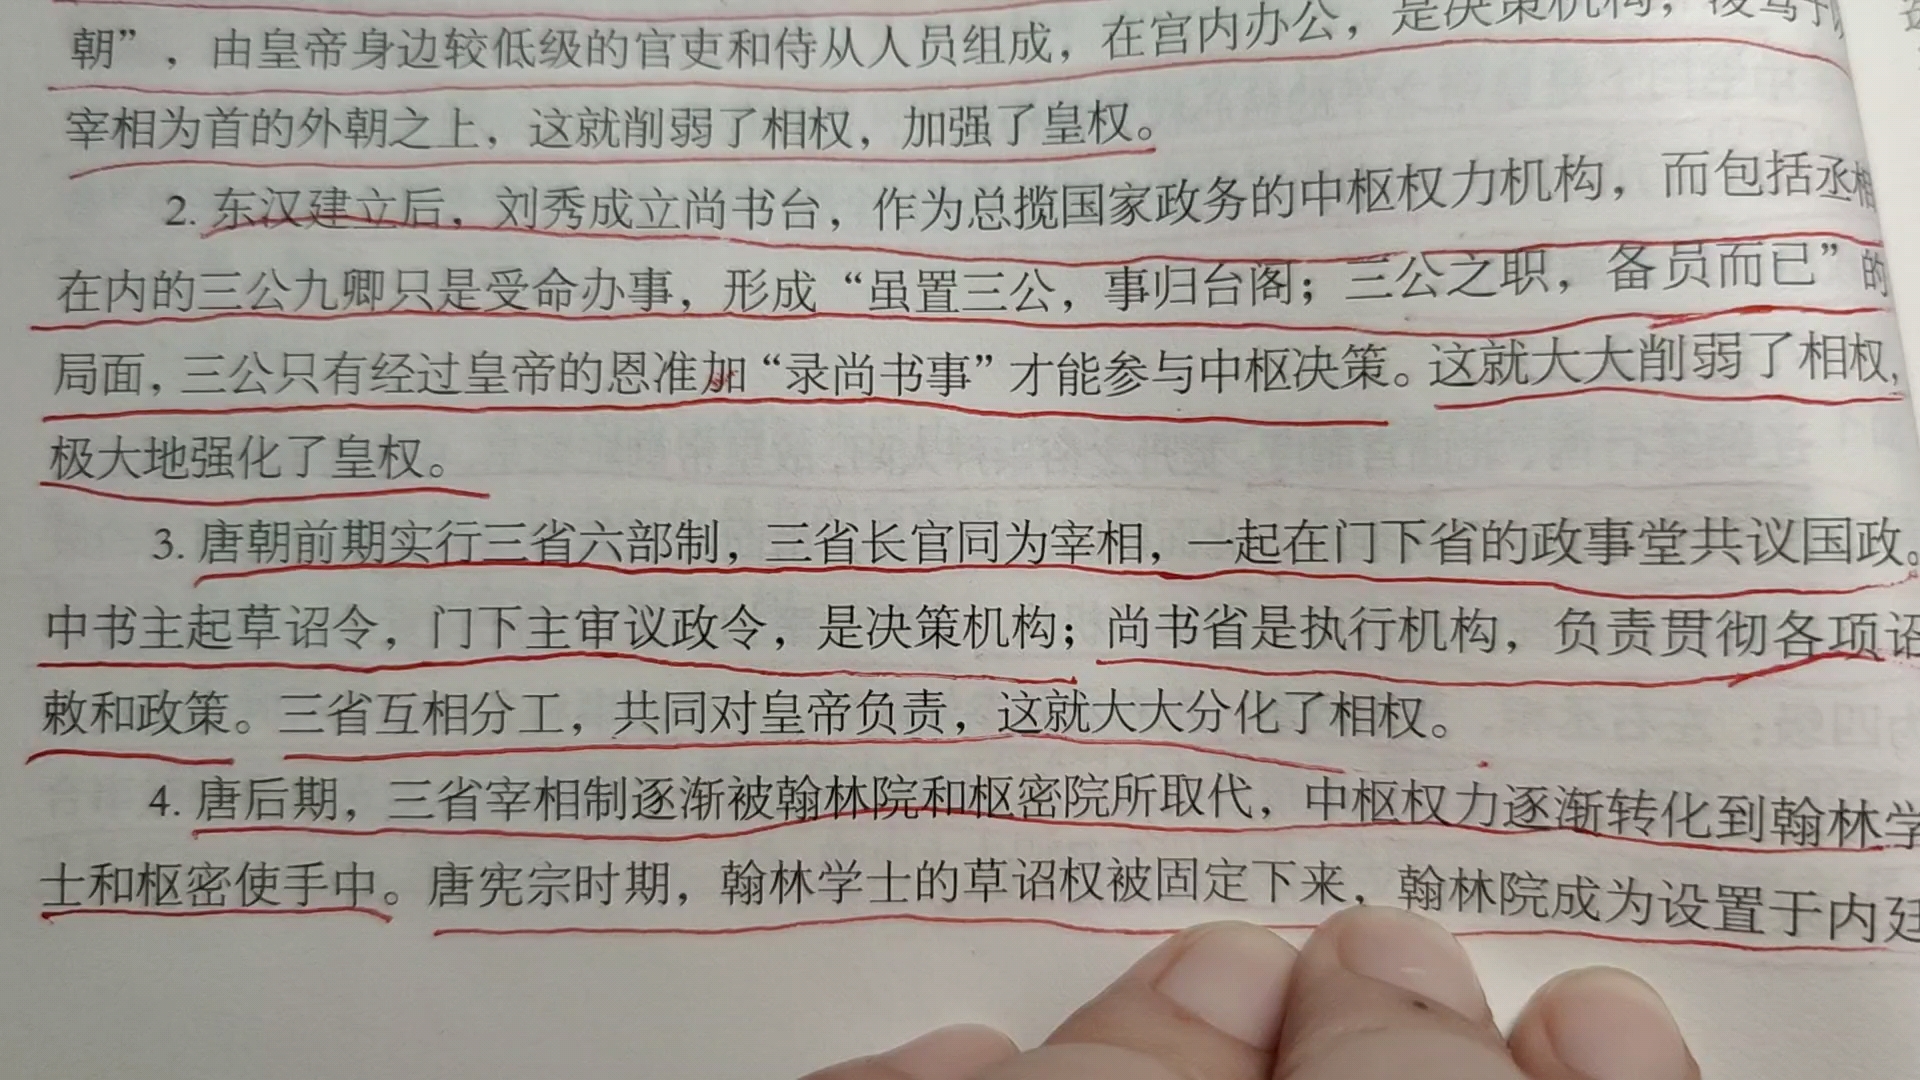 朝”，由皇帝身边较低级的官吏和侍从人员组成，在宫内办公，是决策机构，凌驾于
宰相为首的外朝之上，这就削弱了相权，加强了皇权。
2. 东汉建立后，刘秀成立尚书台，作为总揽国家政务的中枢权力机构，而包括丞相
在内的三公九卿只是受命办事，形成“虽置三公，事归台阁；三公之职，备员而已”的
局面，三公只有经过皇帝的恩准加“录尚书事”才能参与中枢决策。这就大大削弱了相权，
极大地强化了皇权。
3. 唐朝前期实行三省六部制，三省长官同为宰相，一起在门下省的政事堂共议国政。
中书主起草诏令，门下主审议政令，是决策机构；尚书省是执行机构，负责贯彻各项诏
敕和政策。三省互相分工，共同对皇帝负责，这就大大分化了相权。
4. 唐后期，三省宰相制逐渐被翰林院和枢密院所取代，中枢权力逐渐转化到翰林学
士和枢密使手中。唐宪宗时期，翰林学士的草诏权被固定下来，翰林院成为设置于内廷